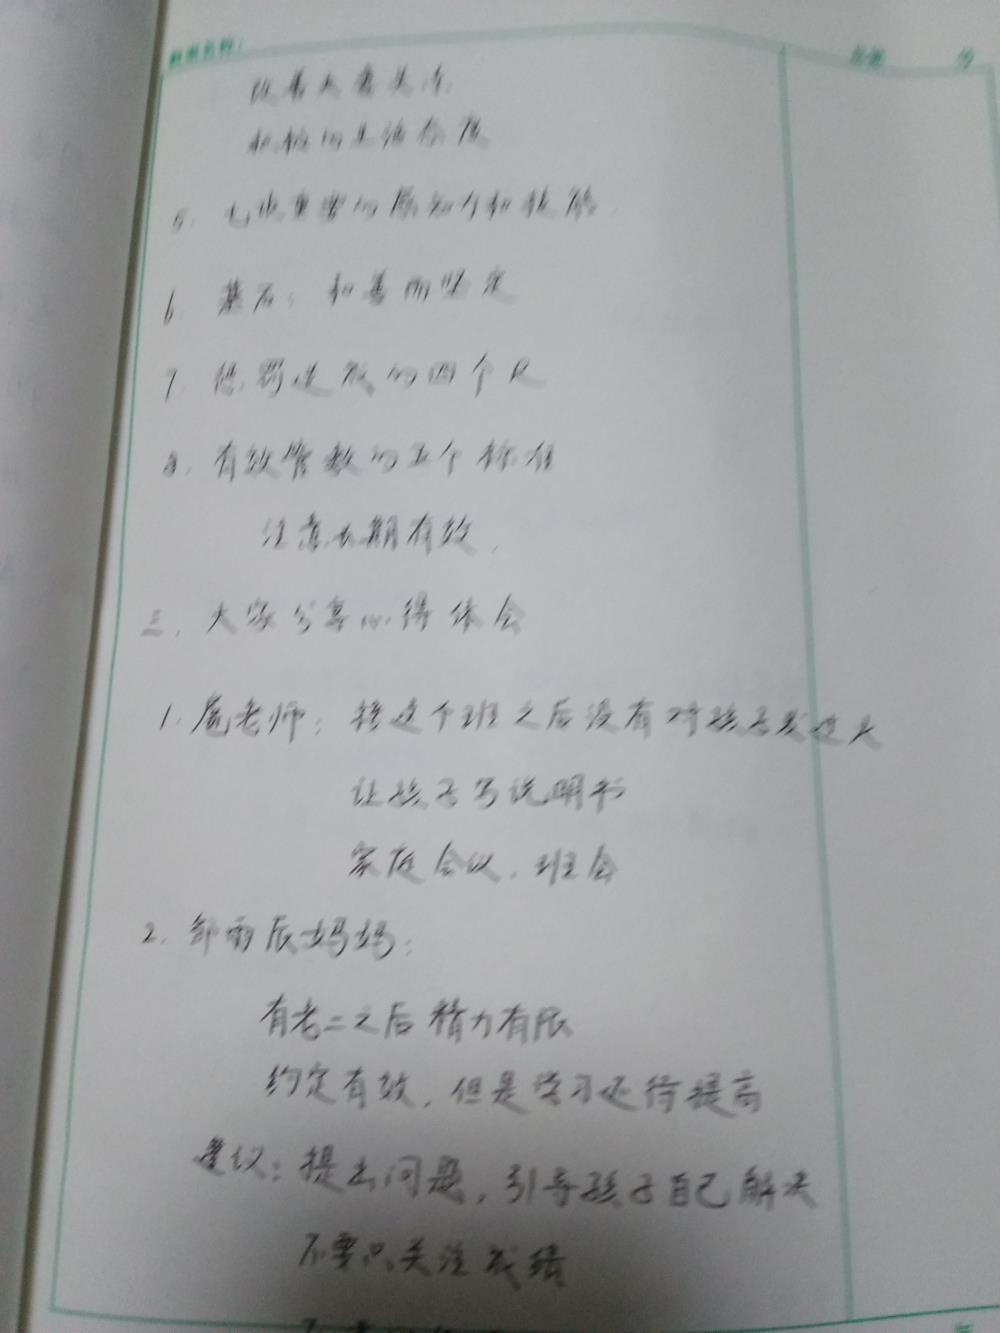 改善夫妻关系
积极的生活态度
5. 七次重要的感知力和技能
6. 基石：和善而坚定
7. 惩罚造成的四个R
8. 有效管教的五个标准
注意长期有效.
三. 大家分享心得体会
1. 老师：接这个班之后没有对孩子发过火
让孩子写说明书
家庭会议. 班会
2. 雨辰妈妈：
有老二之后精力有限
约定有效, 但是学习还待提高
建议：提出问题, 引导孩子自己解决
不要只关注成绩